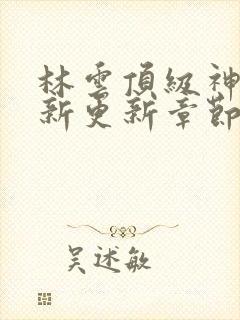 林雲頂級神
新更新章節
吳述敏